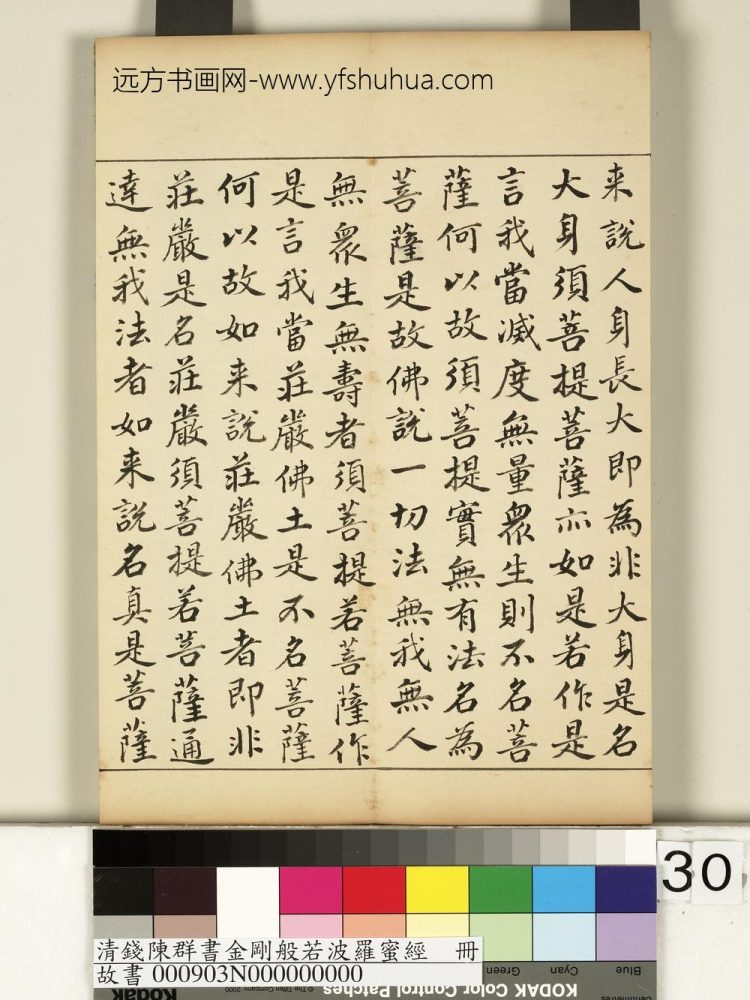 远方书画网-www.yfshuhua.com
来說人身長大即為非大身是名
大身須菩提菩薩亦如是若作是
言我當滅度無量衆生則不名菩
薩何以故須菩提實無有法名為
菩薩是故佛說一切法無我無人
無衆生無壽者須菩提若菩薩作
是言我當莊嚴佛土是不名菩薩
何以故如来說莊嚴佛土者即非
莊嚴是名莊嚴須菩提若菩薩通
達無我法者如来說名真是菩薩
30
清錢陳群書金剛般若波羅蜜經 冊
故書 000903N000000000
Green
Cyan
Blue
KODAK Color Control Patches